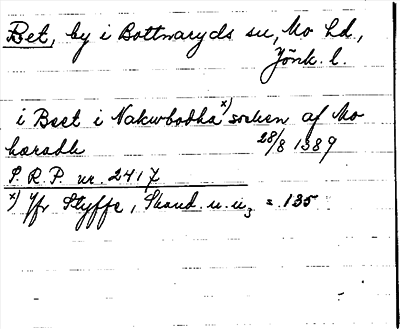 Bet, by i Bottnaryds sn, Mo hd.,
Jönk. l.
i Beet i Nakwbodha x) sochen af Mo
hæradh 28/8 1389
S. R. P. nr. 2417
x) Jfr Styffe, Skand. u. u3 s. 135